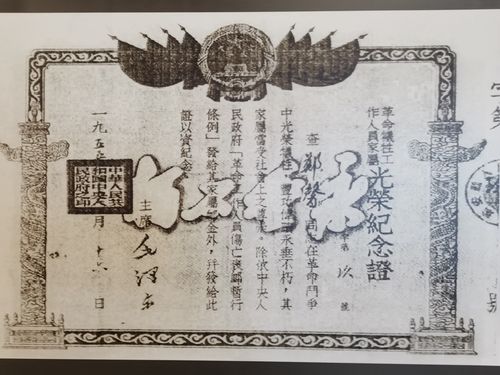 革命犧牲工
作人員家屬
光榮紀念證
字第 玖 號
查 同志在革命鬥爭
中光榮犧牲,豐功偉績永垂不朽,其
家屬當受社會上之尊崇。除依中央人
民政府「革命工作人員傷亡褒卹暫行
條例」發給其家屬卹金外,幷發給此
證以資紀念。
主席 毛澤東
一九五 年 月十六日
中華人民共
和國中央人
民政府之印